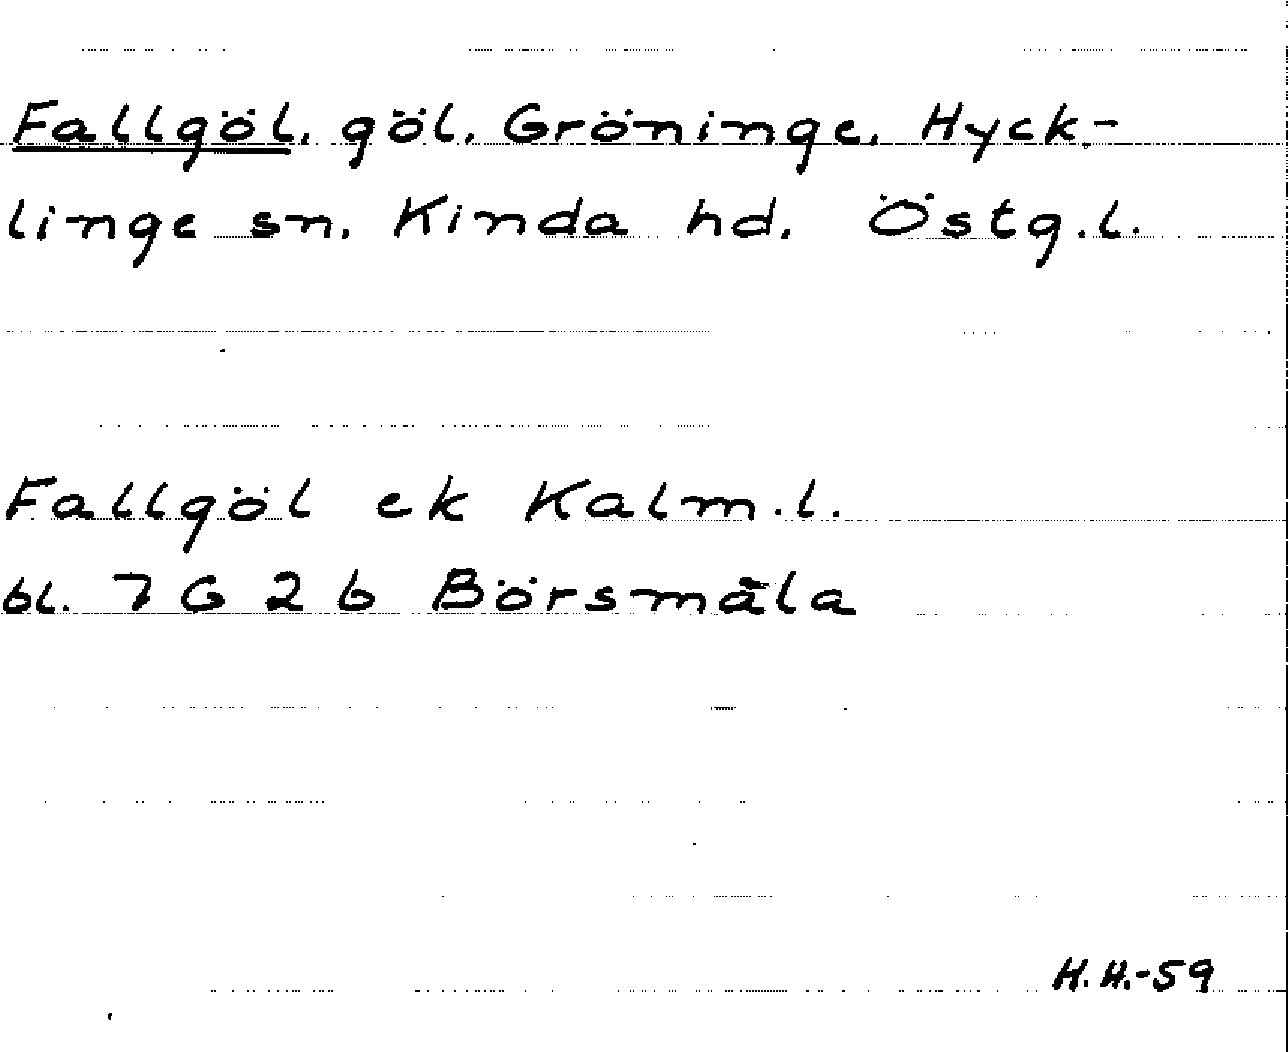 Fallgöl. göl. Gröninge. Hyck-
linge sn. Kinda hd. Östg.l.
Fallgöl ek Kalm.l.
bl. 7 G 2 b Börsmåla
H.H.-59